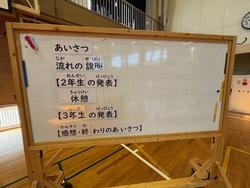 あいさつ
なが せつめい
流れの 説明
ねんせい はっぴょう
【2年生 の発表】
きゅうけい
休憩
ねんせい はっぴょう
【3年生 の発表】
かんそう お
【感想・終 わりのあいさつ】